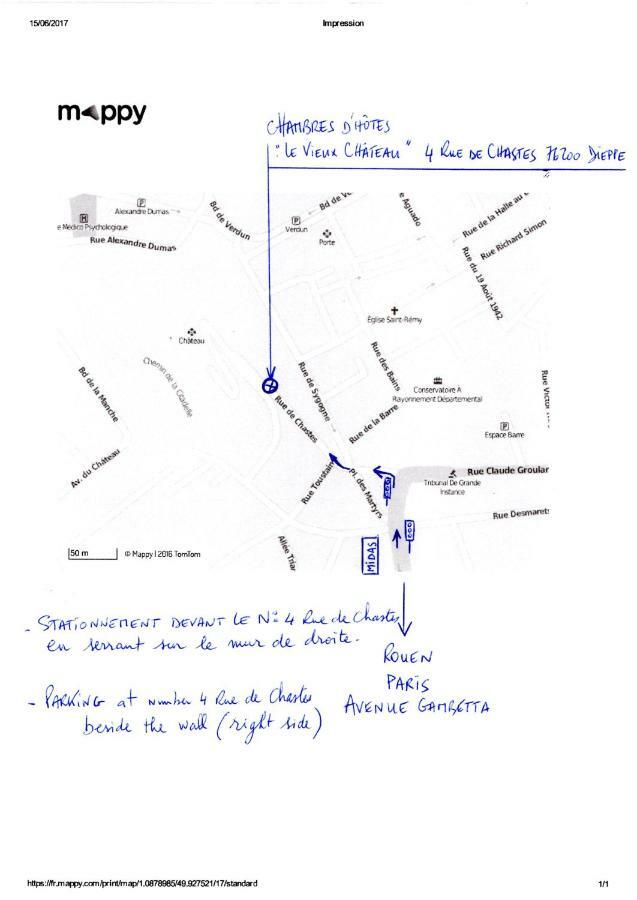 15/06/2017
Impression
mappy
CHAMBRES D'HÔTES
"LE VIEUX CHÂTEAU" 4 RUE DE CHASTES 76200 DIEPPE
Alexandre Dumas
e Médico Psychologique
Rue Alexandre Dumas
Bd de Verdun
Verdun
Bd de Ve
Porte
e Aguado
Rue de la Halle au
Rue Richard Simon
Rue du 19 Août 1942
Église Saint-Rémy
Château
Chemin de la Citadelle
Bd de la Manche
Av. du Château
Rue de Sygogne
Rue des Bains
Conservatoire À
Rayonnement Départemental
Rue de Chastes
Rue de la Barre
Rue Victor
Espace Barre
Rue Toustain
Pl. des Martyrs
Rue Claude Groular
Tribunal De Grande
Instance
Rue Desmarets
Allée Triar
MIDAS
50 m
© Mappy | 2016 TomTom
- STATIONNEMENT DEVANT LE N° 4 Rue de Chastes
en serrant sur le mur de droite.
ROUEN
PARIS
AVENUE GAMBETTA
- PARKING at number 4 Rue de Chastes
beside the wall (right side)
https://fr.mappy.com/print/map/1.0878985/49.927521/17/standard
1/1